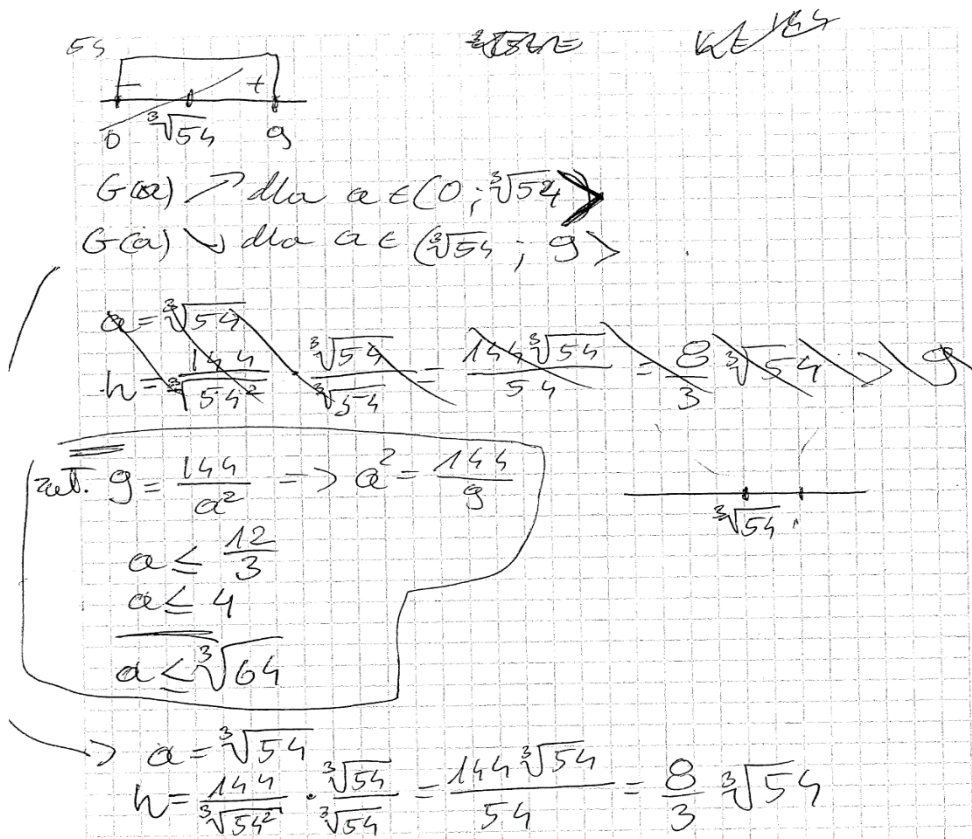 54
- +
0 ∛54 9
G(a) ↗ dla a ∈ (0 ; ∛54 >
G(a) ↘ dla a ∈ (∛54 ; 9 >
a = ∛54
h = 144/∛54² · ∛54/∛54 = 144∛54/54 = 8/3 ∛54 > 9
zał. 9 = 144/a² => a² = 144/9
∛54
a ≤ 12/3
a ≤ 4
a ≤ ∛64
-> a = ∛54
h = 144/∛54² · ∛54/∛54 = 144∛54/54 = 8/3 ∛54